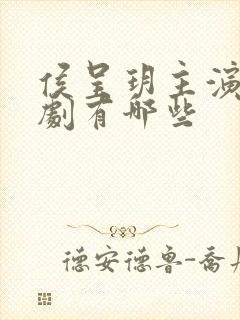 侯呈玥主演
劇有哪些
德安德鲁-喬丹